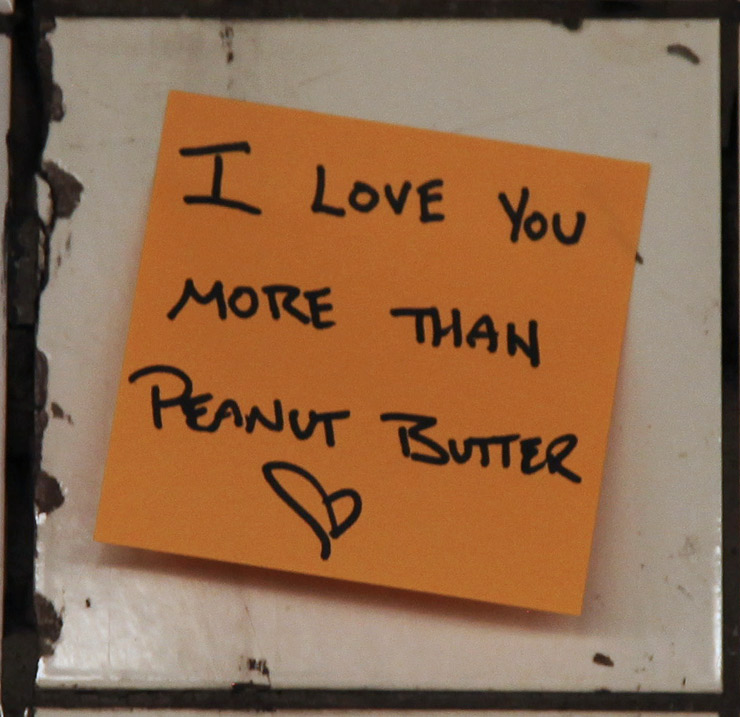 I LOVE YOU
MORE THAN
PEANUT BUTTER